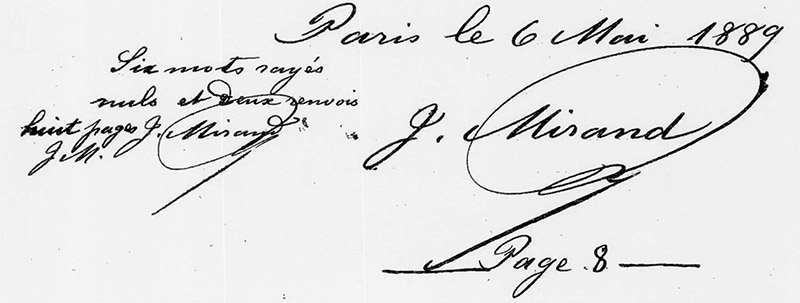 Paris le 6 Mai 1889
Six mots rayés
nuls et deux renvois
huit pages J. Mirand
J.M.
J. Mirand
Page 8